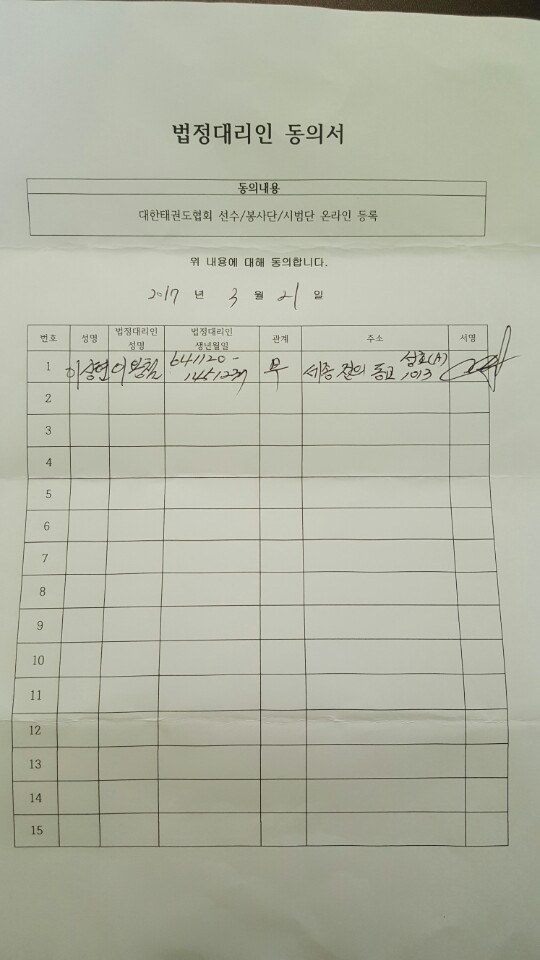 법정대리인 동의서
동의내용
대한태권도협회 선수/봉사단/시범단 온라인 등록
위 내용에 대해 동의합니다.
2017 년 3 월 21 일
번호 성명 법정대리인 성명 법정대리인 생년월일 관계 주소 서명
1 이상현 641120- 부 세종 전의 1013
2
3
4
5
6
7
8
9
10
11
12
13
14
15